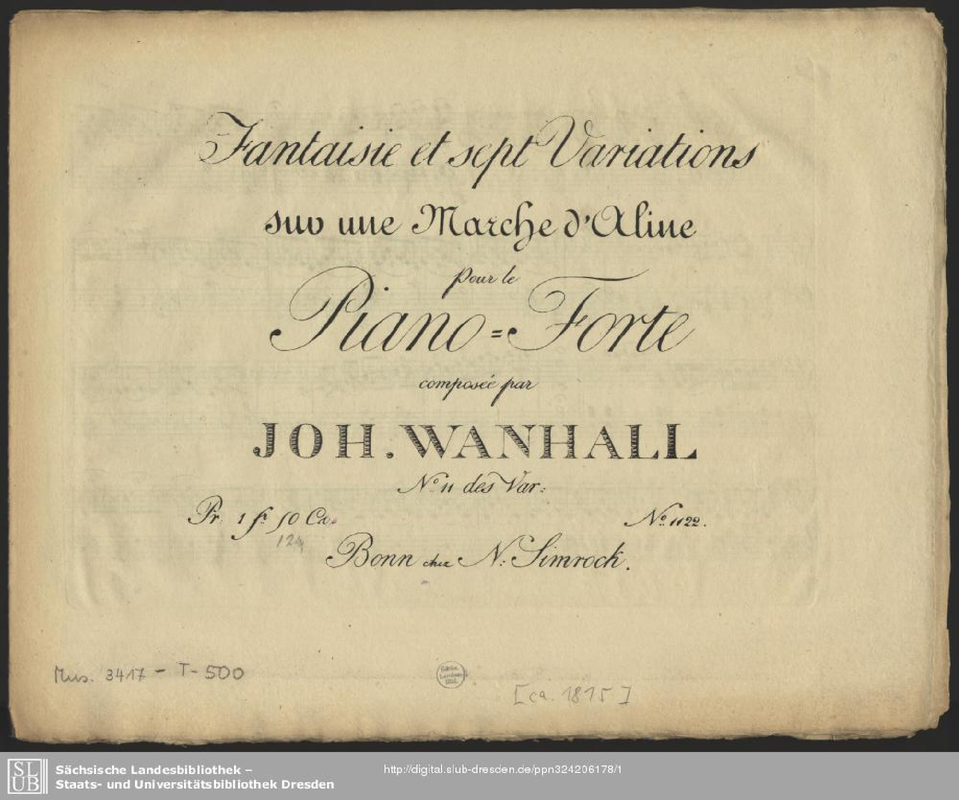 Fantaisie et sept Variations
sur une Marche d'Aline
pour le
Piano=Forte
composée par
JOH. WANHALL
No. 11 des Var:
Pr. 1 fr. 50 Cs.
No. 1122.
124
Bonn chez N: Simrock.
Mus. 3417-T-500
[ca. 1815]
SLUB
Sächsische Landesbibliothek –
Staats- und Universitätsbibliothek Dresden
http://digital.slub-dresden.de/ppn324206178/1